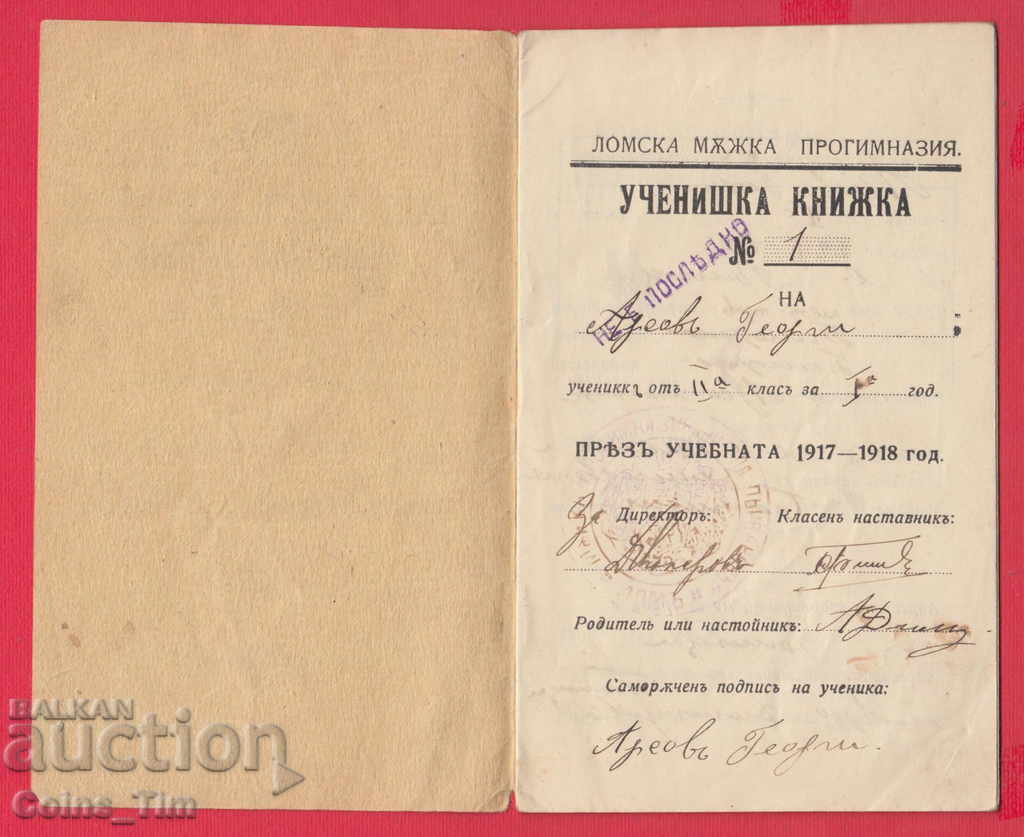 ЛОМСКА МѪЖКА ПРОГИМНАЗИЯ.
УЧЕНИШКА КНИЖКА
№ 1
ПОСЛѢДНО
НА
Аресовъ Георги
ученикъ отъ IIа класъ за Iа год.
ПРѢЗЪ УЧЕБНАТА 1917—1918 год.
За Директоръ: Класенъ наставникъ:
Родитель или настойникъ:
Саморѫченъ подпись на ученика:
Аресовъ Георги.
BALKAN
auction
Coins_Tim